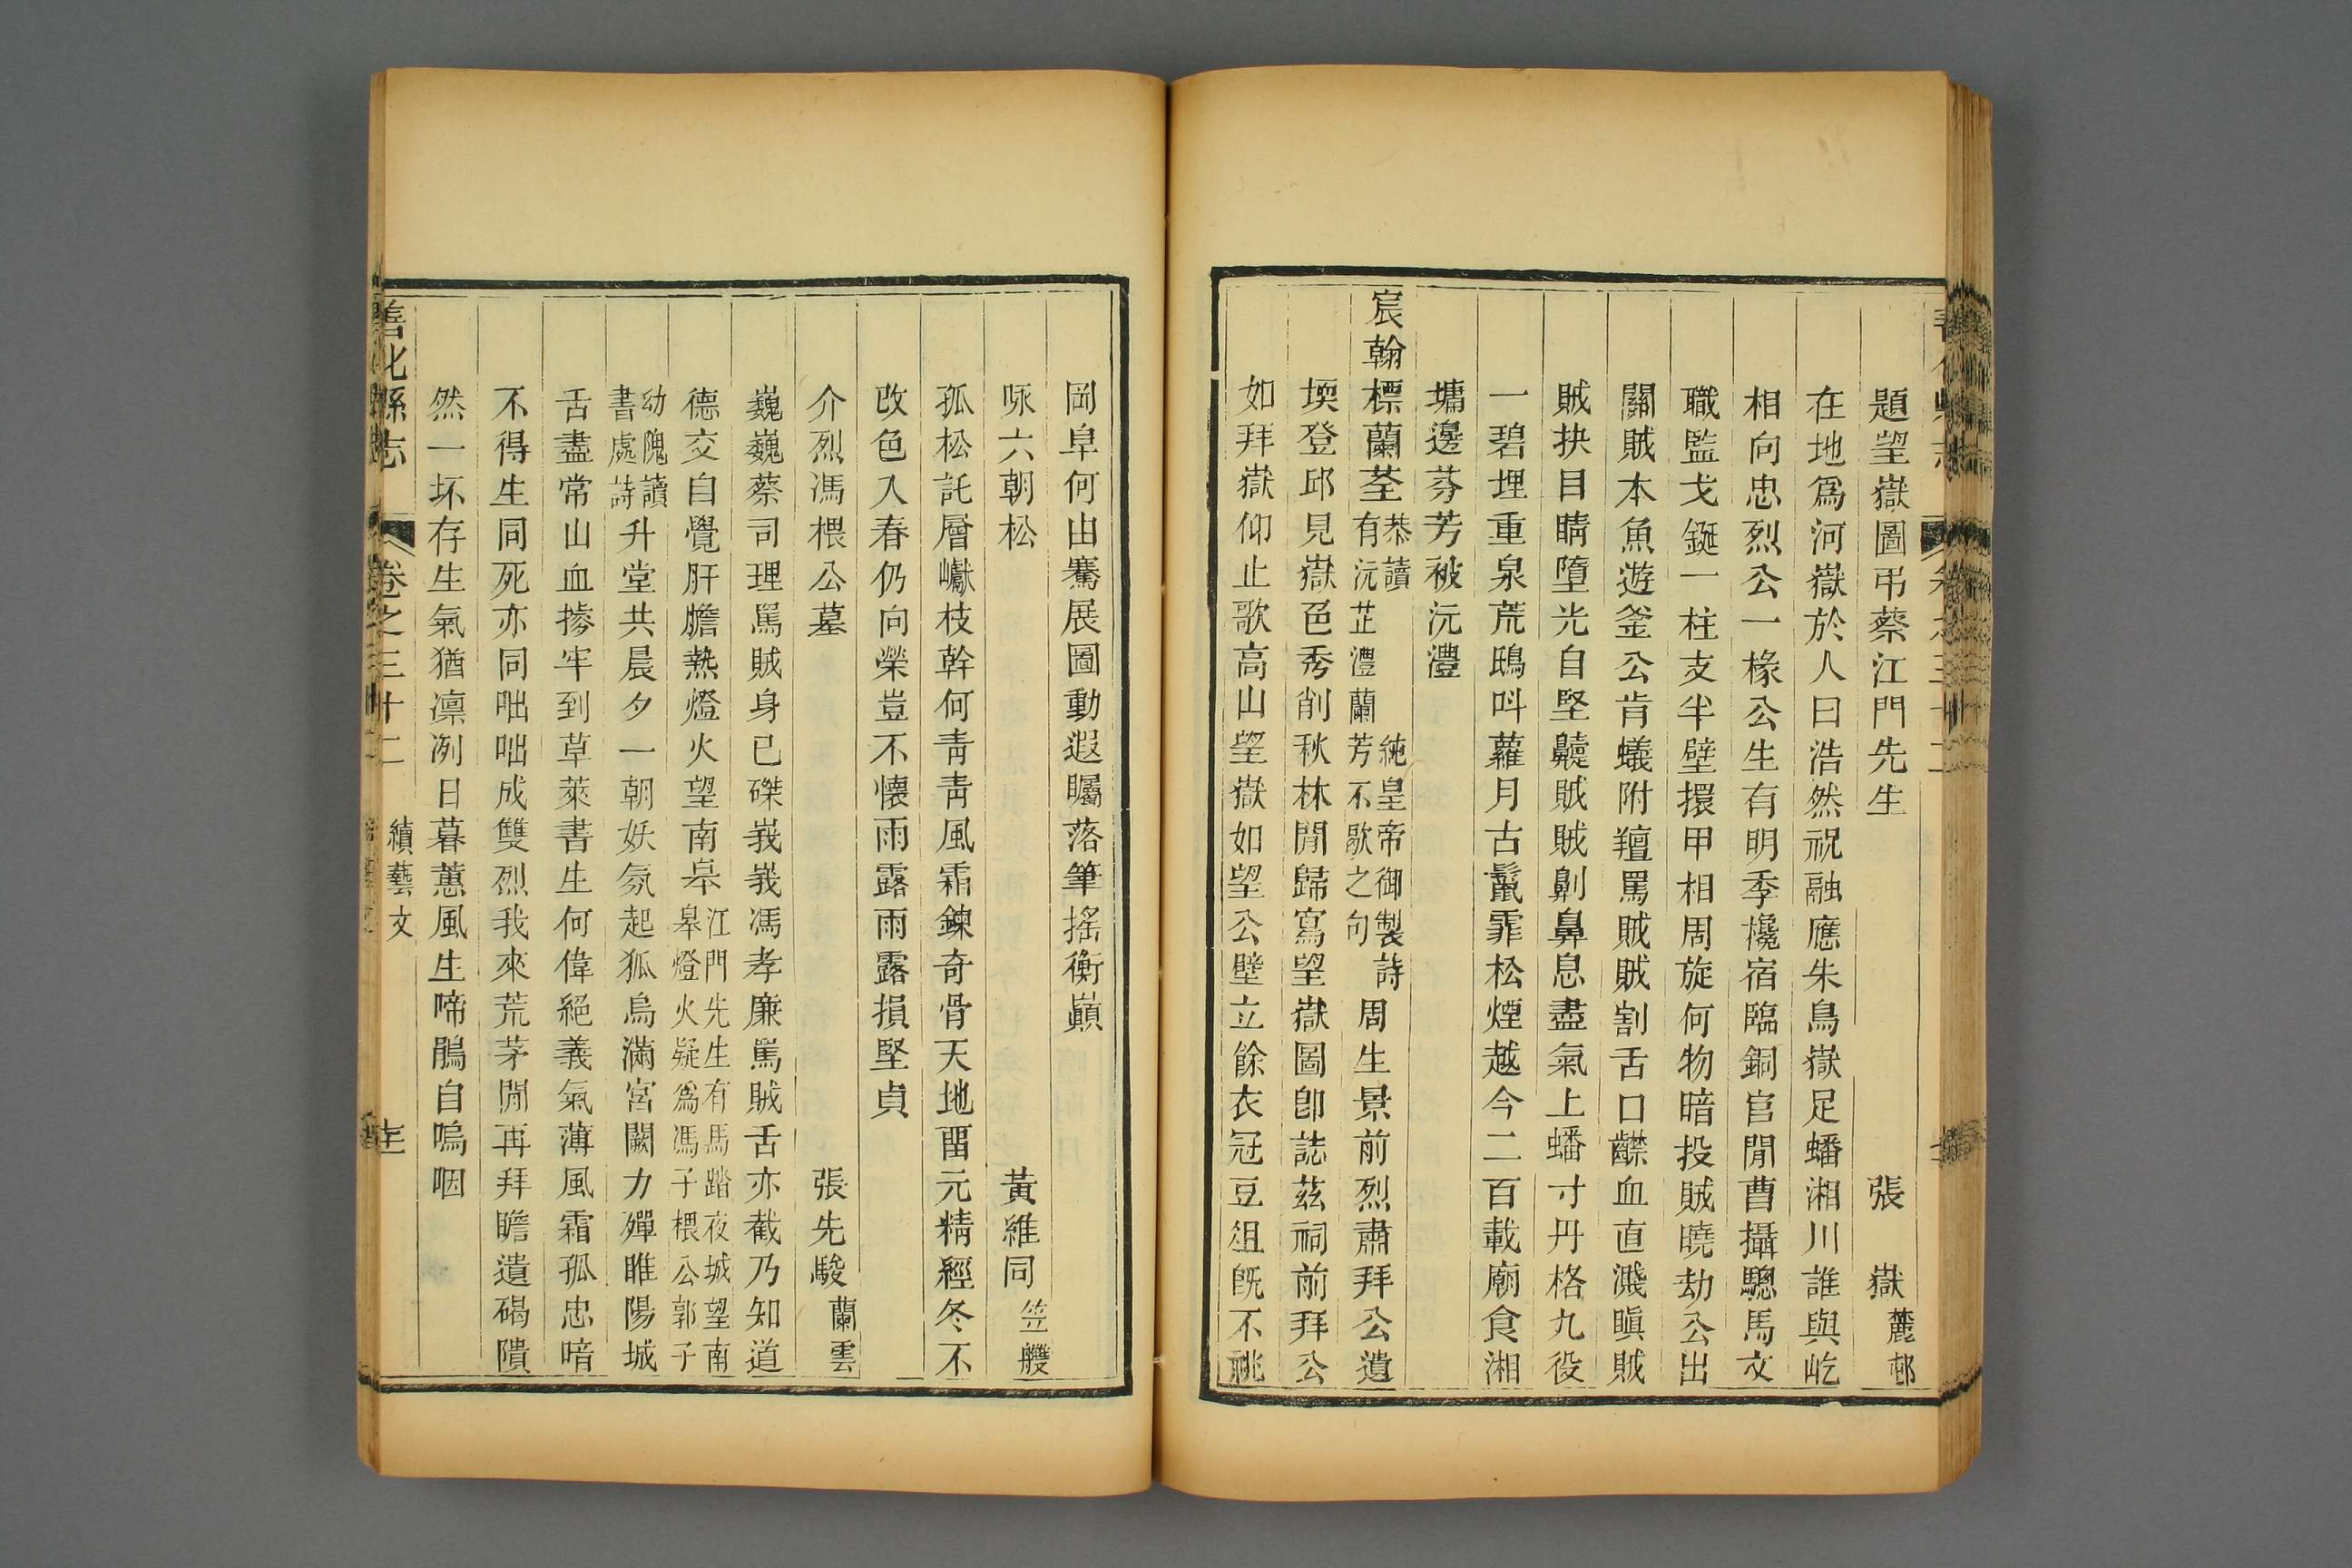 題望嶽圖弔蔡江門先生　張　嶽麓邨
在地爲河嶽於人曰浩然祝融應朱鳥嶽足蟠湘川誰與屹
相向忠烈公一椽公生有明季欃宿臨銅官閒曹攝驄馬文
職監戈鋋一柱支半壁擐甲相周旋何物暗投賊曉劫公出
關賊本魚遊釜公肯蟻附羶罵賊賊割舌口齼血直濺瞋賊
賊抉目睛墮光自堅齅賊賊劓鼻息盡氣上蟠寸丹格九役
一碧埋重泉荒鴟呌蘿月古鬣霏松煙越今二百載廟食湘
墉邊芬芳被沅灃
宸翰標蘭荃恭讀純皇帝御製詩有沅芷澧蘭芳不歇之句周生景前烈肅拜公遺
堧登邱見嶽色秀削秋林閒歸寫望嶽圖卽誌茲祠前拜公
如拜嶽仰止歌高山望嶽如望公壁立餘衣冠豆俎旣不祧
岡阜何由騫展圖動遐矚落筆搖衡巔
咏六朝松　黃維同笠艭
孤松託層巘枝幹何青青風霜鍊奇骨天地畱元精經冬不
改色入春仍向榮豈不懷雨露雨露損堅貞
介烈馮楒公墓　張先駿蘭雲
巍巍蔡司理罵賊身已磔峩峩馮孝廉罵賊舌亦截乃知道
德交自覺肝膽熱燈火望南皋江門先生有馬踏夜城望南皋燈火疑爲馮子楒公郭子
幼隗讀書處詩升堂共晨夕一朝妖氛起狐鳥滿宮闕力殫睢陽城
舌盡常山血摻牢到草萊書生何偉絕義氣薄風霜孤忠暗
不得生同死亦同咄咄成雙烈我來荒茅閒再拜瞻遺碣隤
然一坏存生氣猶凛冽日暮蕙風生啼鵑自嗚咽
善化縣志　卷之三十二　續藝文